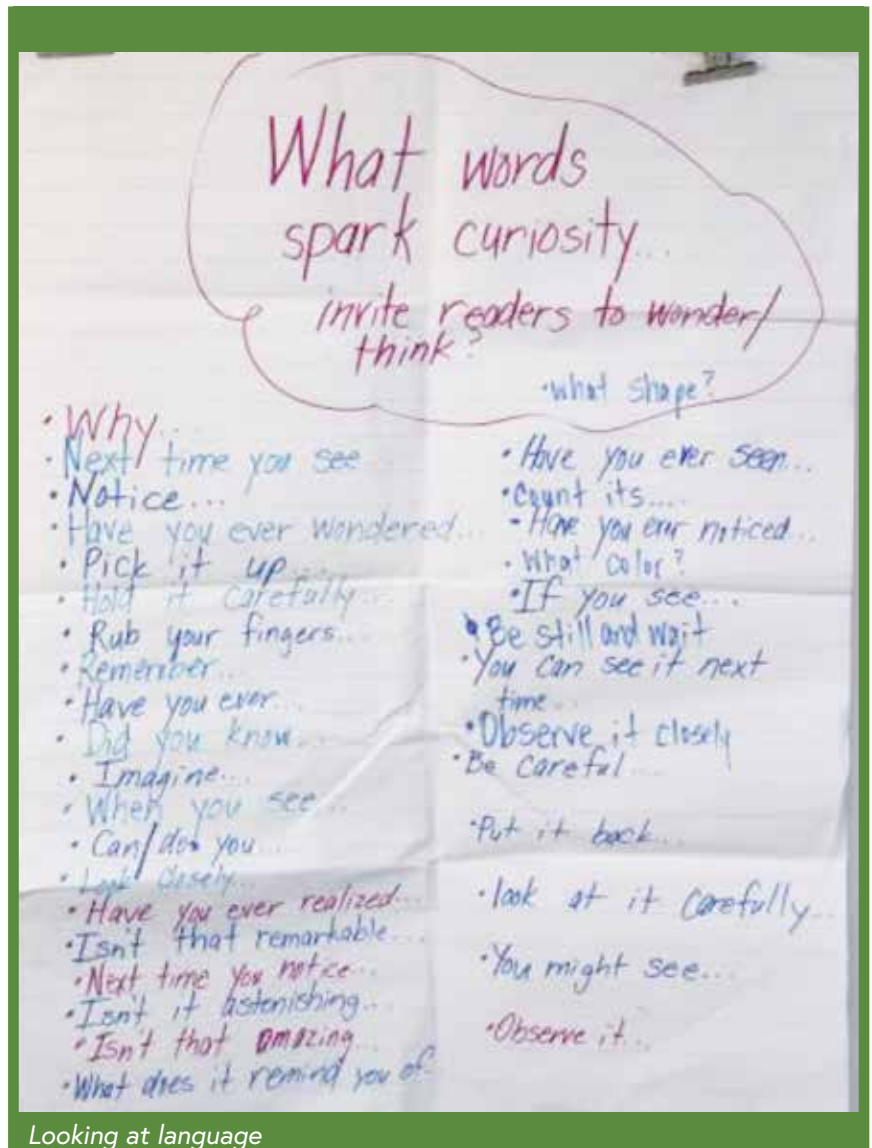 What words
spark curiosity...
invite readers to wonder/
think?
• Why...
• Next time you see
• Notice...
• Have you ever wondered...
• Pick it up...
• Hold it carefully...
• Rub your fingers...
• Remember...
• Have you ever...
• Did you know...
• Imagine...
• When you see...
• Can/do you...
• Look closely...
• Have you ever realized...
• Isn't that remarkable...
• Next time you notice...
• Isn't it astonishing...
• Isn't that amazing...
• What does it remind you of
• what shape?
• Have you ever seen...
• Count its....
• Have you ever noticed...
• What color?
• If you see...
• Be still and wait
• You can see it next
time...
• Observe it closely
• Be careful...
• Put it back...
• look at it carefully...
• You might see...
• Observe it...
Looking at language